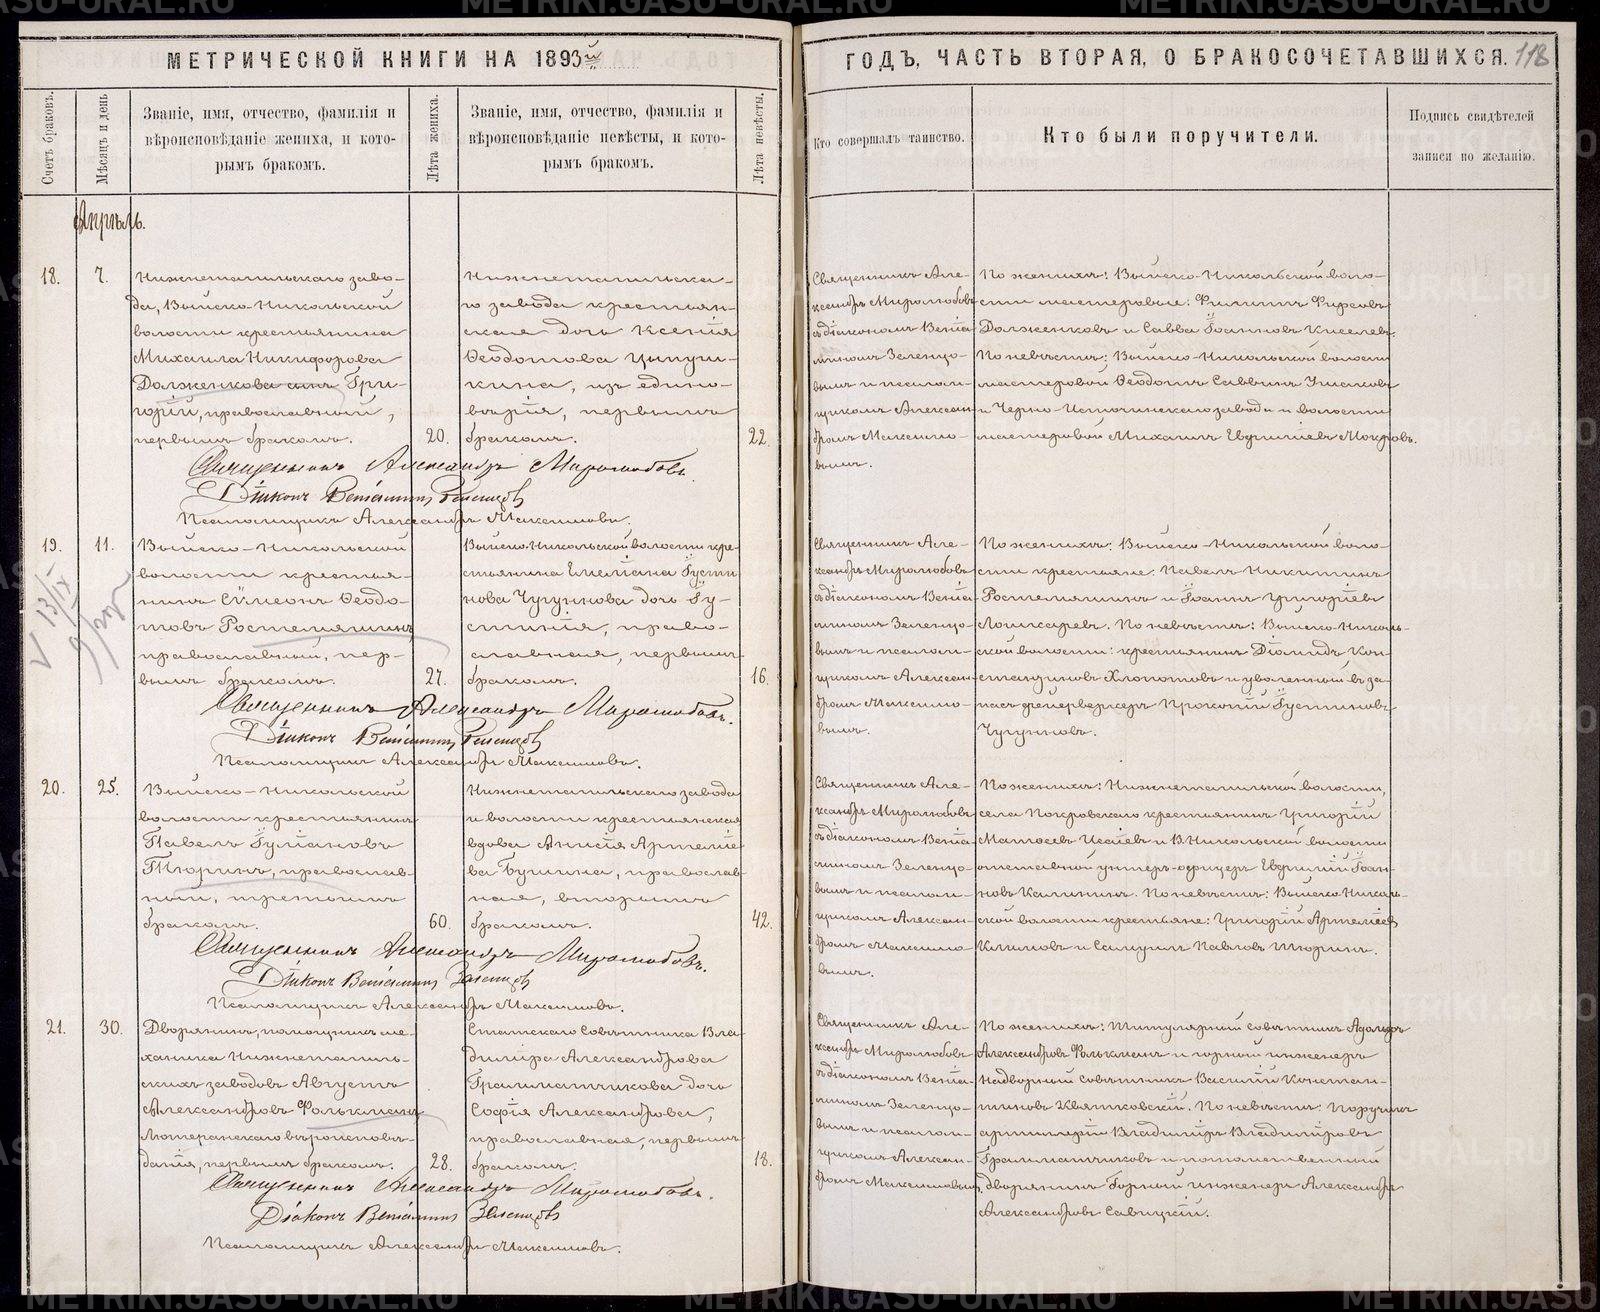 МЕТРИЧЕСКОЙ КНИГИ НА 1893й
ГОДЪ, ЧАСТЬ ВТОРАЯ, О БРАКОСОЧЕТАВШИХСЯ. 118
Счетъ браковъ.
Мѣсяцъ и день
Званіе, имя, отчество, фамилія и
вѣроисповѣданіе жениха, и кото-
рымъ бракомъ.
Лѣта жениха.
Званіе, имя, отчество, фамилія и
вѣроисповѣданіе невѣсты, и кото-
рымъ бракомъ.
Лѣта невѣсты.
Кто совершалъ таинство.
Кто были поручители.
Подпись свидѣтелей
записи по желанію.
Апрѣль.
18. 7.
Нижнетагильскаго заво-
да, Выйско-Никольской
волости крестьянина
Михаила Никифорова
Долженкова сынъ Гри-
горій, православный,
первымъ бракомъ. 20.
Нижнетагильска-
го завода крестьян-
ская дочь Ксенія
Ѳеодотова
изъ едино-
вѣрія, первымъ
бракомъ. 22.
Священникъ Але-
ксандръ Миролюбовъ
съ діакономъ Веніа-
миномъ Зеленцо-
вымъ и псалом-
щикомъ Алексан-
дромъ Максимо-
вымъ.
По женихѣ: Выйско-Никольской воло-
сти мастеровые: Филиппъ Фирсовъ
Долженковъ и Савва Іоанновъ Киселевъ.
По невѣстѣ: Выйско-Никольской волости
мастеровой Ѳеодотъ Саввинъ Ушаковъ
и Черно-Источинскаго завода и волости
мастеровой Михаилъ Мокровъ.
Священникъ Александръ Миролюбовъ.
Діаконъ Веніаминъ Зеленцовъ
Псаломщикъ Александръ Максимовъ.
19. 11.
V 13/IX
Выйско-Никольской
волости крестья-
нинъ Сѵмеонъ Ѳеодо-
товъ Ростемяшинъ,
православный, пер-
вымъ бракомъ. 27.
Выйско-Никольской волости кре-
стьянина Емеліана Іусти
нова Чугункова дочь Іу-
стинія, право-
славная, первымъ
бракомъ. 16.
Священникъ Але-
ксандръ Миролюбовъ
съ діакономъ Веніа-
миномъ Зеленцо-
вымъ и псалом-
щикомъ Алексан-
дромъ Максимо-
вымъ.
По женихѣ: Выйско-Никольской воло-
сти крестьяне: Павелъ Никитинъ
Ростемяшинъ и Іоаннъ Григоріевъ
Лошкаревъ. По невѣстѣ: Выйско-Николь-
ской волости: крестьянинъ Діомидъ Кон-
стантиновъ Хлопотовъ и уволенный въ за-
пасъ фейерверкеръ Прокопій Іустиновъ
Чугунковъ.
Священникъ Александръ Миролюбовъ.
Діаконъ Веніаминъ Зеленцовъ
Псаломщикъ Александръ Максимовъ.
20. 25.
Выйско-Никольской
волости крестьянинъ
Павелъ Іуліановъ
Тюринъ, православ-
ный, третьимъ
бракомъ. 60.
Нижнетагильскаго завода
и волости крестьянская
вдова Анисія Артеміе
ва Бушина, православ-
ная, вторымъ
бракомъ. 42.
Священникъ Але-
ксандръ Миролюбовъ
съ діакономъ Веніа-
миномъ Зеленцо-
вымъ и псалом-
щикомъ Алексан-
дромъ Максимо-
вымъ.
По женихѣ: Нижнетагильской волости,
села Покровскаго крестьянинъ Григорій
Матѳеевъ Исаіевъ и В.Никольской волости
отставной унтеръ-офицеръ Евѳимій Іоан-
новъ Калининъ. По невѣстѣ: Выйско-Николь-
ской волости крестьяне: Григорій Артеміев
Климовъ и Самуилъ Павловъ Тюринъ.
Священникъ Александръ Миролюбовъ.
Діаконъ Веніаминъ Зеленцовъ
Псаломщикъ Александръ Максимовъ.
21. 30.
Дворянинъ, помощникъ ме-
ханика Нижнетагиль-
скихъ заводовъ Августъ
Александровъ Фолькманъ
лютеранскаго вѣроисповѣ-
данія, первымъ бракомъ. 28.
Статскаго Совѣтника Вла-
диміра Александрова
Грамматчикова дочь
Софія Александрова,
православная, первымъ
бракомъ. 18.
Священникъ Але-
ксандръ Миролюбовъ
съ діакономъ Веніа-
миномъ Зеленцо-
вымъ и псалом-
щикомъ Алексан-
дромъ Максимовымъ.
По женихѣ: Титулярный совѣтникъ Адольфъ
Александровъ Фолькманъ и горный инженеръ
надворный совѣтникъ Василій Констан-
тиновъ Квятковскій. По невѣстѣ: Поручикъ
артиллеріи Владиміръ Владиміровъ
Грамматчиковъ и потомственный
дворянинъ Горный инженеръ Александръ
Александровъ Савицкій.
Священникъ Александръ Миролюбовъ.
Діаконъ Веніаминъ Зеленцовъ
Псаломщикъ Александръ Максимовъ.
METRIKI.GASO-URAL.RU